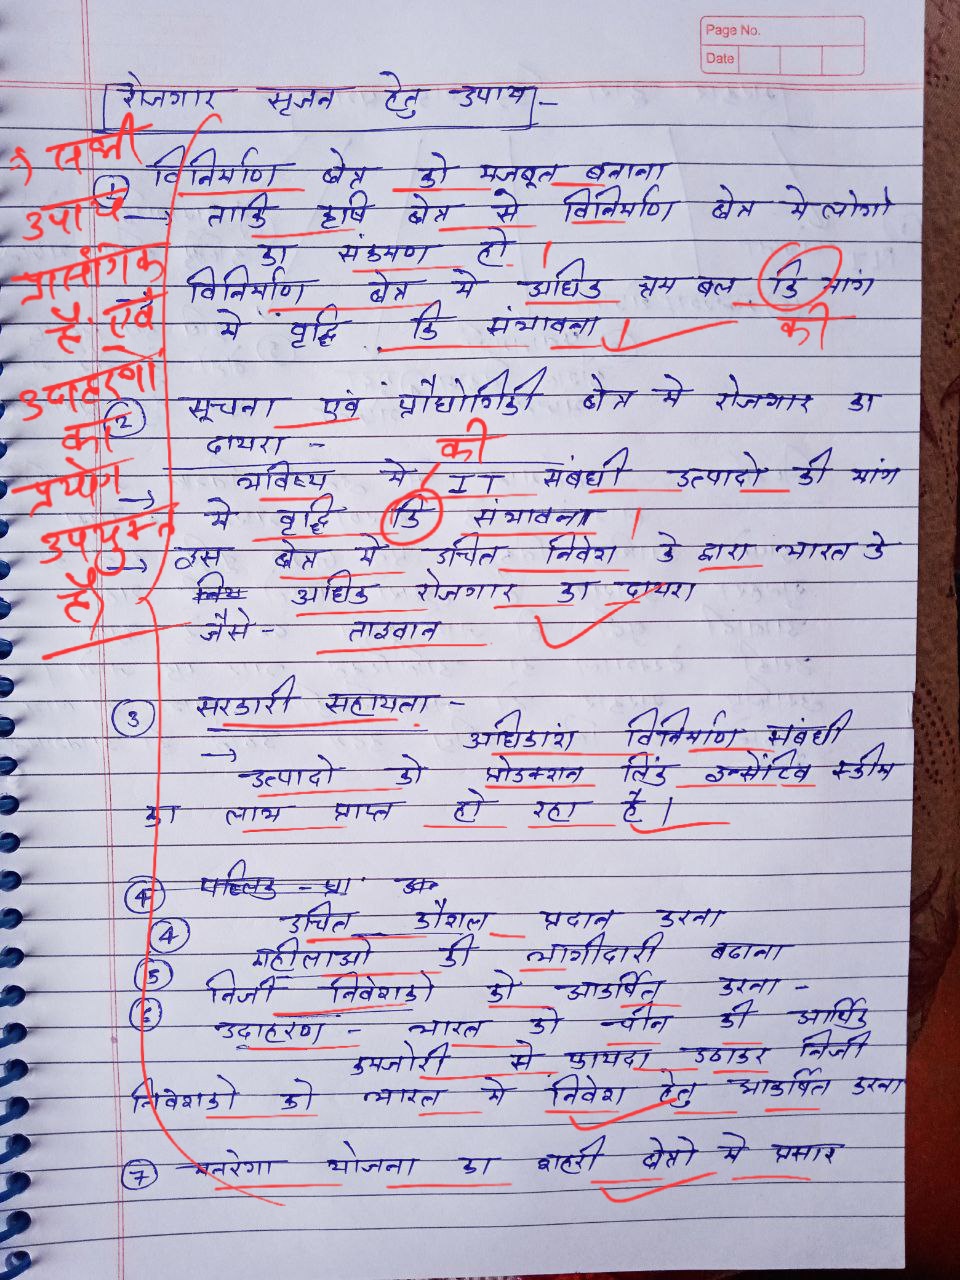 Page No.
Date
रोजगार सृजन हेतु उपाय -
① विनिर्माण क्षेत्र को मजबूत बनाना
→ ताकि कृषि क्षेत्र से विनिर्माण क्षेत्र मे लोगो
का संक्रमण हो।
विनिर्माण क्षेत्र मे अधिक श्रम बल कि मांग
की
मे वृद्धि कि संभावना।
② सूचना एवं प्रौद्योगिकी क्षेत्र मे रोजगार का
दायरा -
की
→ भविष्य मे IT संबंधी उत्पादो की मांग
मे वृद्धि कि संभावना।
→ इस क्षेत्र मे उचित निवेश के द्वारा भारत के
अधिक रोजगार का दायरा
जैसे - ताइवान
③ सरकारी सहायता -
→ अधिकांश विनिर्माण संबंधी
उत्पादो को प्रोडक्शन लिंक इन्सेंटिव स्कीम
का लाभ प्राप्त हो रहा है।
④
④ उचित कौशल प्रदान करना
⑤ महीलाओ की भागीदारी बढाना
⑥ निजी निवेशको को आकर्षित करना -
उदाहरण - भारत को चीन की आर्थिक
कमजोरी से फायदा उठाकर निजी
निवेशको को भारत मे निवेश हेतु आकर्षित करना
⑦ मनरेगा योजना का शहरी क्षेत्रो मे प्रसार
→ सभी
उपाय
प्रासंगिक
है, एवं
उदाहरणों
का
प्रयोग
उपयुक्त
है।